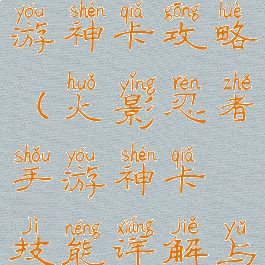 yóu shén qiǎ gōng lüè
游神卡攻略
huǒ yǐng rěn zhě
（火影忍者
shǒu yóu shén qiǎ
手游神卡
jì néng xiáng jiě yǔ
技能详解与